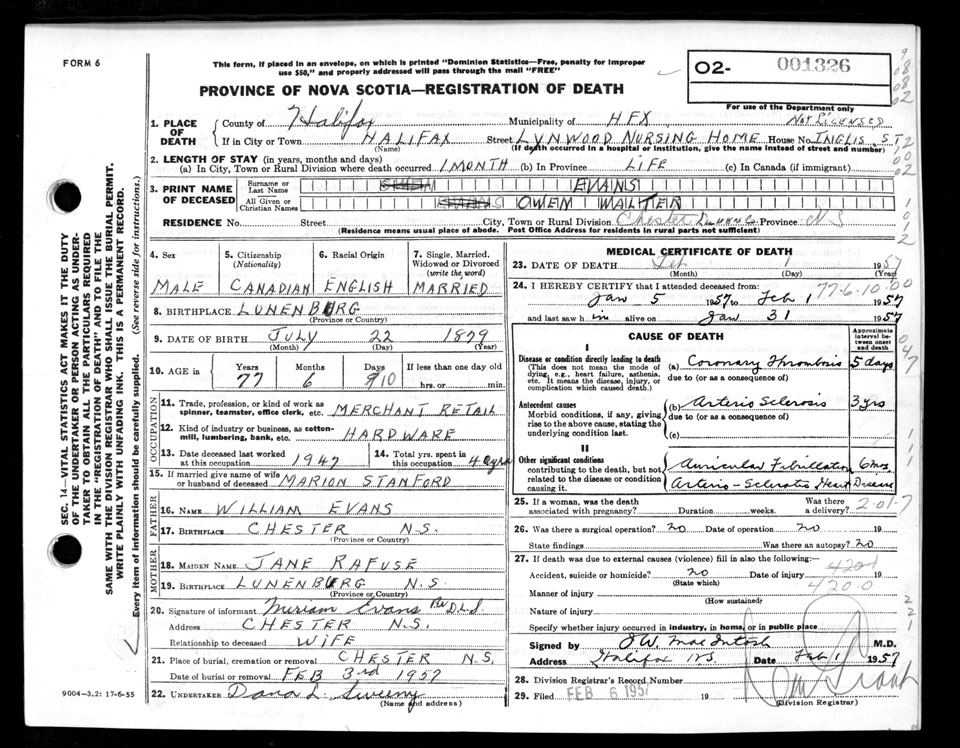 FORM 6
This form, if placed in an envelope, on which is printed "Dominion Statistics—Free, penalty for improper
use $50," and properly addressed will pass through the mail "FREE"
O2- 001326
PROVINCE OF NOVA SCOTIA—REGISTRATION OF DEATH
For use of the Department only
NOT LICENSED
1. PLACE OF DEATH
County of Halifax Municipality of HFX
If in City or Town HALIFAX Street LYNWOOD NURSING HOME House No. INGLIS ST
(Name) (If death occurred in a hospital or institution, give the name instead of street and number)
2. LENGTH OF STAY (in years, months and days)
(a) In City, Town or Rural Division where death occurred 1 MONTH (b) In Province LIFE (c) In Canada (if immigrant)
3. PRINT NAME OF DECEASED
Surname or Last Name EVANS
All Given or Christian Names OWEN WALTER
RESIDENCE No. Street City, Town or Rural Division Chester Lunen Co. Province NS
(Residence means usual place of abode. Post Office Address for residents in rural parts not sufficient)
4. Sex
MALE
5. Citizenship
(Nationality)
CANADIAN
6. Racial Origin
ENGLISH
7. Single, Married,
Widowed or Divorced
(write the word)
MARRIED
8. BIRTHPLACE LUNENBURG
(Province or Country)
9. DATE OF BIRTH JULY 22 1879
(Month) (Day) (Year)
10. AGE in
Years Months Days If less than one day old
77 6 10 hrs. or min.
OCCUPATION
11. Trade, profession, or kind of work as
spinner, teamster, office clerk, etc. MERCHANT RETAIL
12. Kind of industry or business, as cotton-
mill, lumbering, bank, etc. HARDWARE
13. Date deceased last worked
at this occupation 1947
14. Total yrs. spent in
this occupation 40 yrs
15. If married give name of wife
or husband of deceased MARION STANFORD
FATHER
16. NAME WILLIAM EVANS
17. BIRTHPLACE CHESTER N.S.
(Province or Country)
MOTHER
18. MAIDEN NAME JANE RAFUSE
19. BIRTHPLACE LUNENBURG N.S.
(Province or Country)
20. Signature of informant Miriam Evans Per D.L.S
Address CHESTER N.S.
Relationship to deceased WIFE
21. Place of burial, cremation or removal CHESTER N.S.
Date of burial or removal FEB 3rd 1957
22. UNDERTAKER Dana L. Sweeny
(Name and address)
9004-3.2: 17-6-55
MEDICAL CERTIFICATE OF DEATH
23. DATE OF DEATH Feb 1 1957
(Month) (Day) (Year)
24. I HEREBY CERTIFY that I attended deceased from: 77-6-10-00
Jan 5 1957 to Feb 1 1957
and last saw him alive on Jan 31 1957
CAUSE OF DEATH
Approximate
interval between
onset
and death
I
Disease or condition directly leading to death
(This does not mean the mode of
dying, e.g., heart failure, asthenia,
etc. It means the disease, injury, or
complication which caused death.)
(a) Coronary Thrombosis 5 days
due to (or as a consequence of)
Antecedent causes
Morbid conditions, if any, giving
rise to the above cause, stating the
underlying condition last.
(b) Arterio Sclerosis 3 yrs
due to (or as a consequence of)
(c)
II
Other significant conditions
contributing to the death, but not
related to the disease or condition
causing it.
Auricular Fibrillation 6 mos
Arterio-Sclerotic Heart Disease
25. If a woman, was the death
associated with pregnancy? Duration weeks. Was there
a delivery? 2-01-7
26. Was there a surgical operation? no Date of operation no 19
State findings Was there an autopsy? no
27. If death was due to external causes (violence) fill in also the following:
Accident, suicide or homicide? no Date of injury 19
(State which)
4201
Manner of injury 420.0
(How sustained)
Nature of injury
Specify whether injury occurred in industry, in home, or in public place
Signed by J W MacIntosh M.D.
Address Halifax N.S. Date Feb 1 1957
28. Division Registrar's Record Number
29. Filed FEB 6 1957 19
(Division Registrar)
SEC. 14—VITAL STATISTICS ACT MAKES IT THE DUTY
OF THE UNDERTAKER OR PERSON ACTING AS UNDER-
TAKER TO OBTAIN ALL THE PARTICULARS REQUIRED
IN THE "REGISTRATION OF DEATH" AND TO FILE THE
SAME WITH THE DIVISION REGISTRAR WHO SHALL ISSUE THE BURIAL PERMIT.
WRITE PLAINLY WITH UNFADING INK. THIS IS A PERMANENT RECORD.
Every item of information should be carefully supplied. (See reverse side for instructions.)